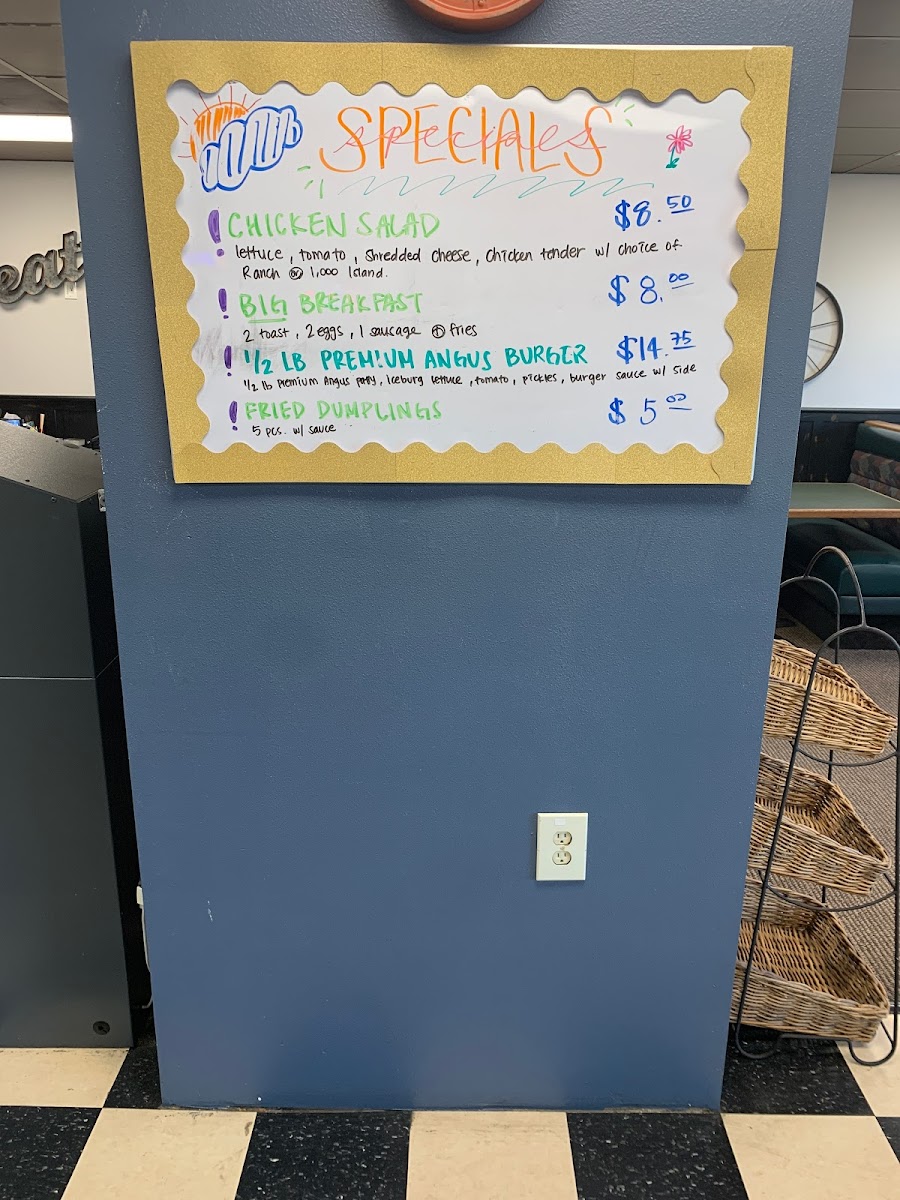 eat
SPECIALS
specials
! CHICKEN SALAD $8.50
lettuce, tomato, shredded cheese, chicken tender w/ choice of
Ranch or 1,000 Island.
! BIG BREAKFAST $8.00
2 toast, 2 eggs, 1 sausage + fries
! 1/2 LB PREMIUM ANGUS BURGER $14.75
1/2 lb Premium Angus patty, iceburg lettuce, tomato, pickles, burger sauce w/ side
! FRIED DUMPLINGS $5.00
5 pcs. w/ sauce